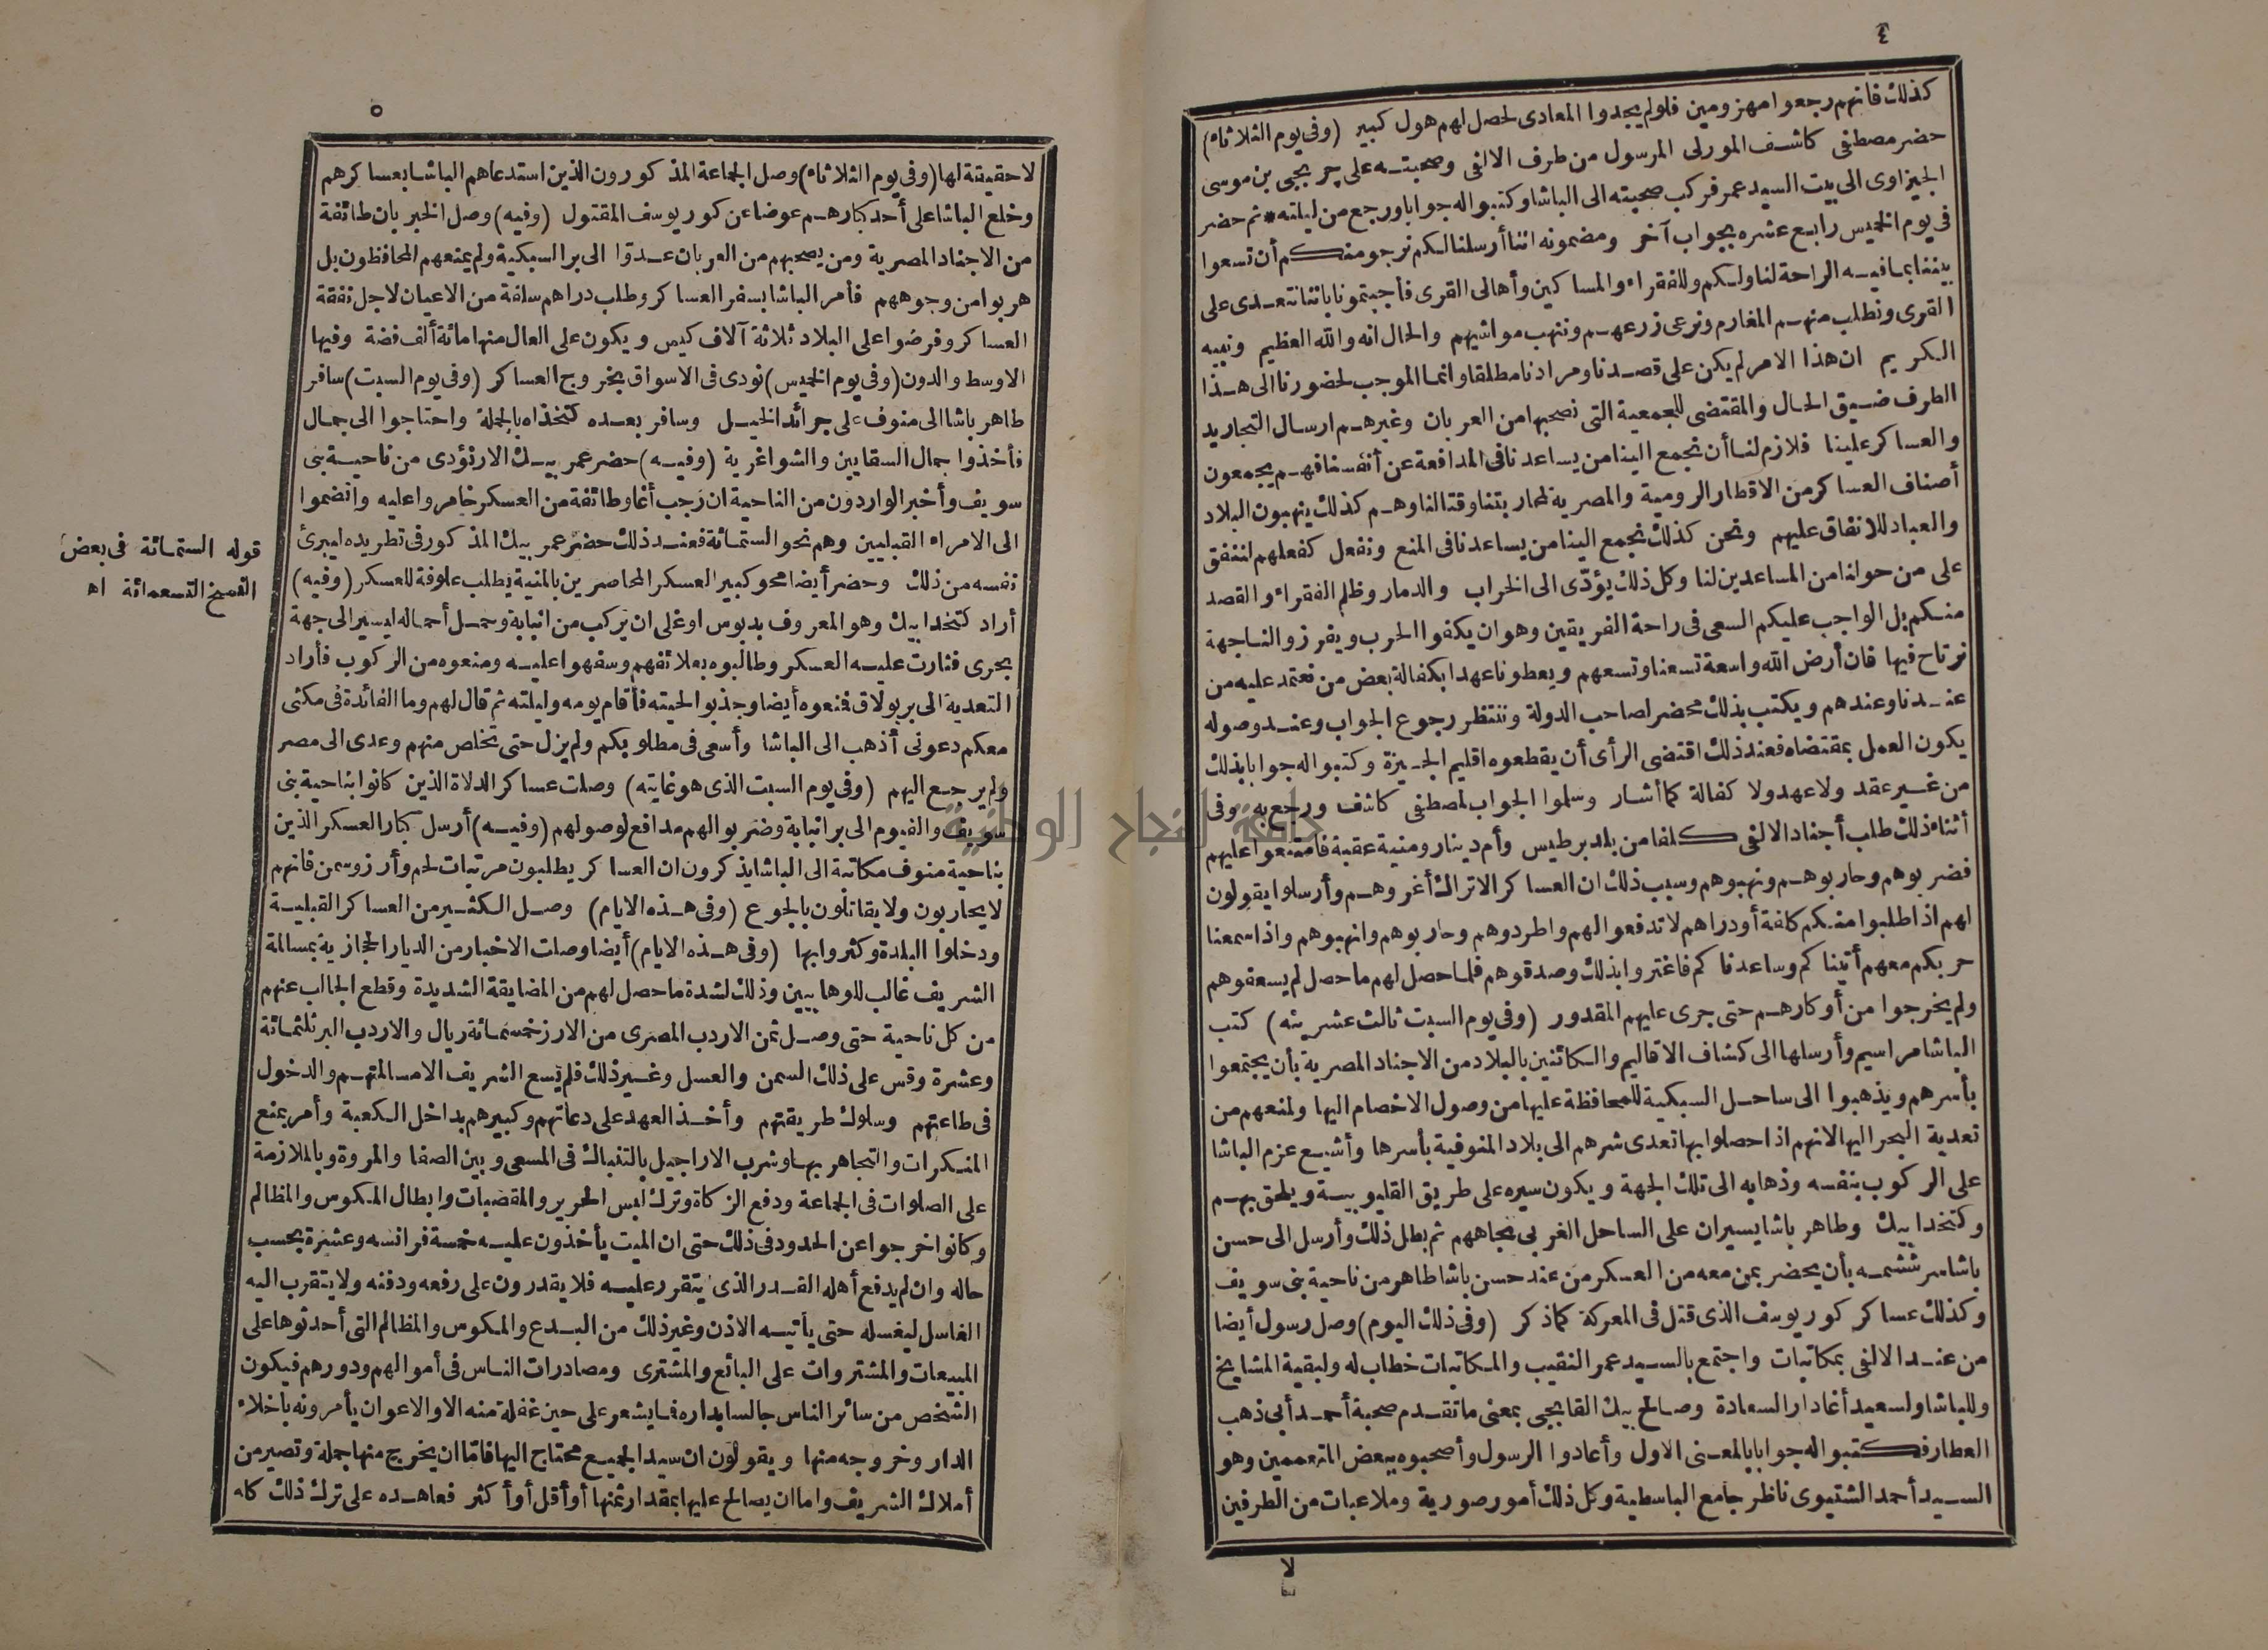 ٤
كذلك فانهم رجعوا مهزومين فلولم يجدوا المعادى لحصل لهم هول كبير (وفى يوم الثلاثاء)
حضر مصطفى كاشف المورلى المرسول من طرف الالفى وصحبته على جربجى بن موسى
الجيزاوى الى بيت السيد عمر فركب صحبته الى الباشا وكتبوا له جوابا ورجع من ليلته * ثم حضر
فى يوم الخميس رابع عشره بجواب آخر ومضمونه اننا أرسلنا لكم نرجو منكم أن تسعوا
بيننا بما فيه الراحة لنا ولكم وللفقراء والمساكين وأهالى القرى فأجبتمونا باننا نتعدى على
القرى ونطلب منهم المغارم ونرعى زرعهم وننهب مواشيهم والحال انه والله العظيم ونبيه
الكريم ان هذا الامر لم يكن على قصدنا ومرادنا مطلقا وانما الموجب لحضورنا الى هذا
الطرف ضيق الحال والمقتضى للجمعية التى نصحبها من العربان وغيرهم ارسال التجاريد
والعساكر علينا فلازم لنا أن نجمع الينا من يساعدنا فى المدافعة عن أنفسنا فهم يجمعون
أصناف العساكر من الاقطار الرومية والمصرية لمحاربتنا وقتالنا وهم كذلك ينهبون البلاد
والعباد للانفاق عليهم ونحن كذلك نجمع الينا من يساعدنا فى المنع ونفعل كفعلهم لننفق
على من حولنا من المساعدين لنا وكل ذلك يؤدّى الى الخراب والدمار وظلم الفقراء والقصد
منكم بل الواجب عليكم السعى فى راحة الفريقين وهو ان يكفوا الحرب ويفرزوا لنا جهة
نرتاح فيها فان أرض الله واسعة تسعنا وتسعهم ويعطونا عهدا بكفالة بعض من نعتمد عليه من
عندنا وعندهم ويكتب بذلك محضر لصاحب الدولة وننتظر رجوع الجواب وعند وصوله
يكون العمل بمقتضاه فعند ذلك اقتضى الرأى أن يقطعوه اقليم الجيزة وكتبوا له جوابا بذلك
من غير عقد ولا عهد ولا كفالة كما أشار وسلموا الجواب لمصطفى كاشف ورجع به وفى
أثناء ذلك طلب أجناد الالفى كلفا من بلد برطيس وأم دينار ومنية عقبة فامتنعوا عليهم
فضربوهم وحاربوهم ونهبوهم وسبب ذلك ان العساكر الاتراك أغروهم وأرسلوا يقولون
لهم اذا طلبوا منكم كلفة أو دراهم لا تدفعوا لهم واطردوهم وحاربوهم وانهبوهم واذا سمعنا
حربكم معهم أتيناكم وساعدناكم فاغتروا بذلك وصدقوهم فلما حصل لهم ما حصل لم يسعفوهم
ولم يخرجوا من أوكارهم حتى جرى عليهم المقدور (وفى يوم السبت ثالث عشرينه) كتب
الباشا مراسيم وأرسلها الى كشاف الاقاليم والكائنين بالبلاد من الاجناد المصرية بأن يجتمعوا
بأسرهم ويذهبوا الى ساحل السبكية للمحافظة عليها من وصول الاخصام اليها ولمنعهم من
تعدية البحر اليها لانهم اذا حصلوا بها تعدى شرهم الى بلاد المنوفية بأسرها وأشيع عزم الباشا
على الركوب بنفسه وذهابه الى تلك الجهة ويكون سيره على طريق القليوبية ويلحق بهم
وكتخدا بيك وطاهر باشا يسيران على الساحل الغربى تجاههم ثم بطل ذلك وأرسل الى حسن
باشا سرششمه بأن يحضر بمن معه من العسكر من عند حسن باشا طاهر من ناحية بنى سويف
وكذلك عساكر كور يوسف الذى قتل فى المعركة كما ذكر (وفى ذلك اليوم) وصل رسول أيضا
من عند الالفى بمكاتبات واجتمع بالسيد عمر النقيب والمكاتبات خطاب له ولبقية المشايخ
وللباشا ولسعيد أغا دار السعادة وصالح بيك القابجى بمعنى ما تقدم صحبة أحمد أبى ذهب
العطار فكتبوا له جوابا بالمعنى الاول وأعادوا الرسول وأصحبوه ببعض المتعممين وهو
السيد أحمد الشتيوى ناظر جامع الباسطية وكل ذلك أمور صورية وملاعبات من الطرفين
لا
٥
لا حقيقة لها (وفى يوم الثلاثاء) وصل الجماعة المذكورون الذين استدعاهم الباشا بعساكرهم
وخلع الباشا على أحد كبارهم عوضا عن كور يوسف المقتول (وفيه) وصل الخبر بان طائفة
من الاجناد المصرية ومن يصحبهم من العربان عدوّا الى بر السبكية ولم يمنعهم المحافظون بل
هربوا من وجوههم فأمر الباشا بسفر العساكر وطلب دراهم سلفة من الاعيان لاجل نفقة
العساكر وفرضوا على البلاد ثلاثة آلاف كيس ويكون على العال منها مائة ألف فضة وفيها
الاوسط والدون (وفى يوم الخميس) نودى فى الاسواق بخروج العساكر (وفى يوم السبت) سافر
طاهر باشا الى منوف على جرائد الخيل وسافر بعده كتخداه بالجملة واحتاجوا الى جمال
فأخذوا جمال السقايين والشواغرية (وفيه) حضر عمر بيك الارنؤدى من ناحية بنى
سويف وأخبر الواردون من الناحية ان رجب أغا وطائفة من العسكر خامروا عليه وانضموا
الى الامراء القبليين وهم نحو الستمائة فعند ذلك حضر عمر بيك المذكور فى تطريده ليبرئ
نفسه من ذلك وحضر أيضا محو كبير العسكر المحاصرين بالمنية يطلب علوفة للعسكر (وفيه)
أراد كتخدا بيك وهو المعروف بدبوس اوغلى ان يركب من انبابة وحمل أحماله ليسير الى جهة
بحرى فثارت عليه العسكر وطالبوه بعلائفهم وسفهوا عليه ومنعوه من الركوب فأراد
التعدية الى بر بولاق فمنعوه أيضا وجذبوا لحيته فأقام يومه وليلته ثم قال لهم وما الفائدة فى مكثى
معكم دعونى أذهب الى الباشا وأسعى فى مطلوبكم ولم يزل حتى تخلص منهم وعدى الى مصر
ولم يرجع اليهم (وفى يوم السبت الذى هو غايته) وصلت عساكر الدلاة الذين كانوا بناحية بنى
سويف والفيوم الى بر انبابة وضربوا لهم مدافع لوصولهم (وفيه) أرسل كبار العسكر الذين
بناحية منوف مكاتبة الى الباشا يذكرون ان العساكر يطلبون مرتبات لحم وأرز وسمن فانهم
لا يحاربون ولا يقاتلون بالجوع (وفى هذه الايام) وصل الكثير من العساكر القبلية
ودخلوا البلدة وكثروا بها (وفى هذه الايام) أيضا وصلت الاخبار من الديار الحجازية بمسالمة
الشريف غالب للوهابيين وذلك لشدة ما حصل لهم من المضايقة الشديدة وقطع الجالب عنهم
من كل ناحية حتى وصل ثمن الاردب المصرى من الارز خمسمائة ريال والاردب البر ثلثمائة
وعشرة وقس على ذلك السمن والعسل وغير ذلك فلم يسع الشريف الا مسالمتهم والدخول
فى طاعتهم وسلوك طريقتهم وأخذ العهد على دعاتهم وكبيرهم بداخل الكعبة وأمر بمنع
المنكرات والتجاهر بها وشرب الاراجيل بالتنباك فى المسعى وبين الصفا والمروة وبالملازمة
على الصلوات فى الجماعة ودفع الزكاة وترك لبس الحرير والمقصبات وابطال المكوس والمظالم
وكانوا خرجوا عن الحدود فى ذلك حتى ان الميت يأخذون عليه خمسة فرانسه وعشرة بحسب
حاله وان لم يدفع أهله القدر الذى يتقرر عليه فلا يقدرون على رفعه ودفنه ولا يتقرب اليه
الغاسل ليغسله حتى يأتيه الاذن وغير ذلك من البدع والمكوس والمظالم التى أحدثوها على
المبيعات والمشتروات على البائع والمشترى ومصادرات الناس فى أموالهم ودورهم فيكون
الشخص من سائر الناس جالسا بداره فما يشعر على حين غفلة منه الا والاعوان يأمرونه باخلاء
الدار وخروجه منها ويقولون ان سيد الجميع محتاج اليها فامّا ان يخرج منها جملة وتصير من
أملاك الشريف واما ان يصالح عليها بمقدار ثمنها أو أقل أو أكثر فعاهده على ترك ذلك كله
قوله الستمائة فى بعض
النسخ التسعمائة اه
جامعة النجاح الوطنية